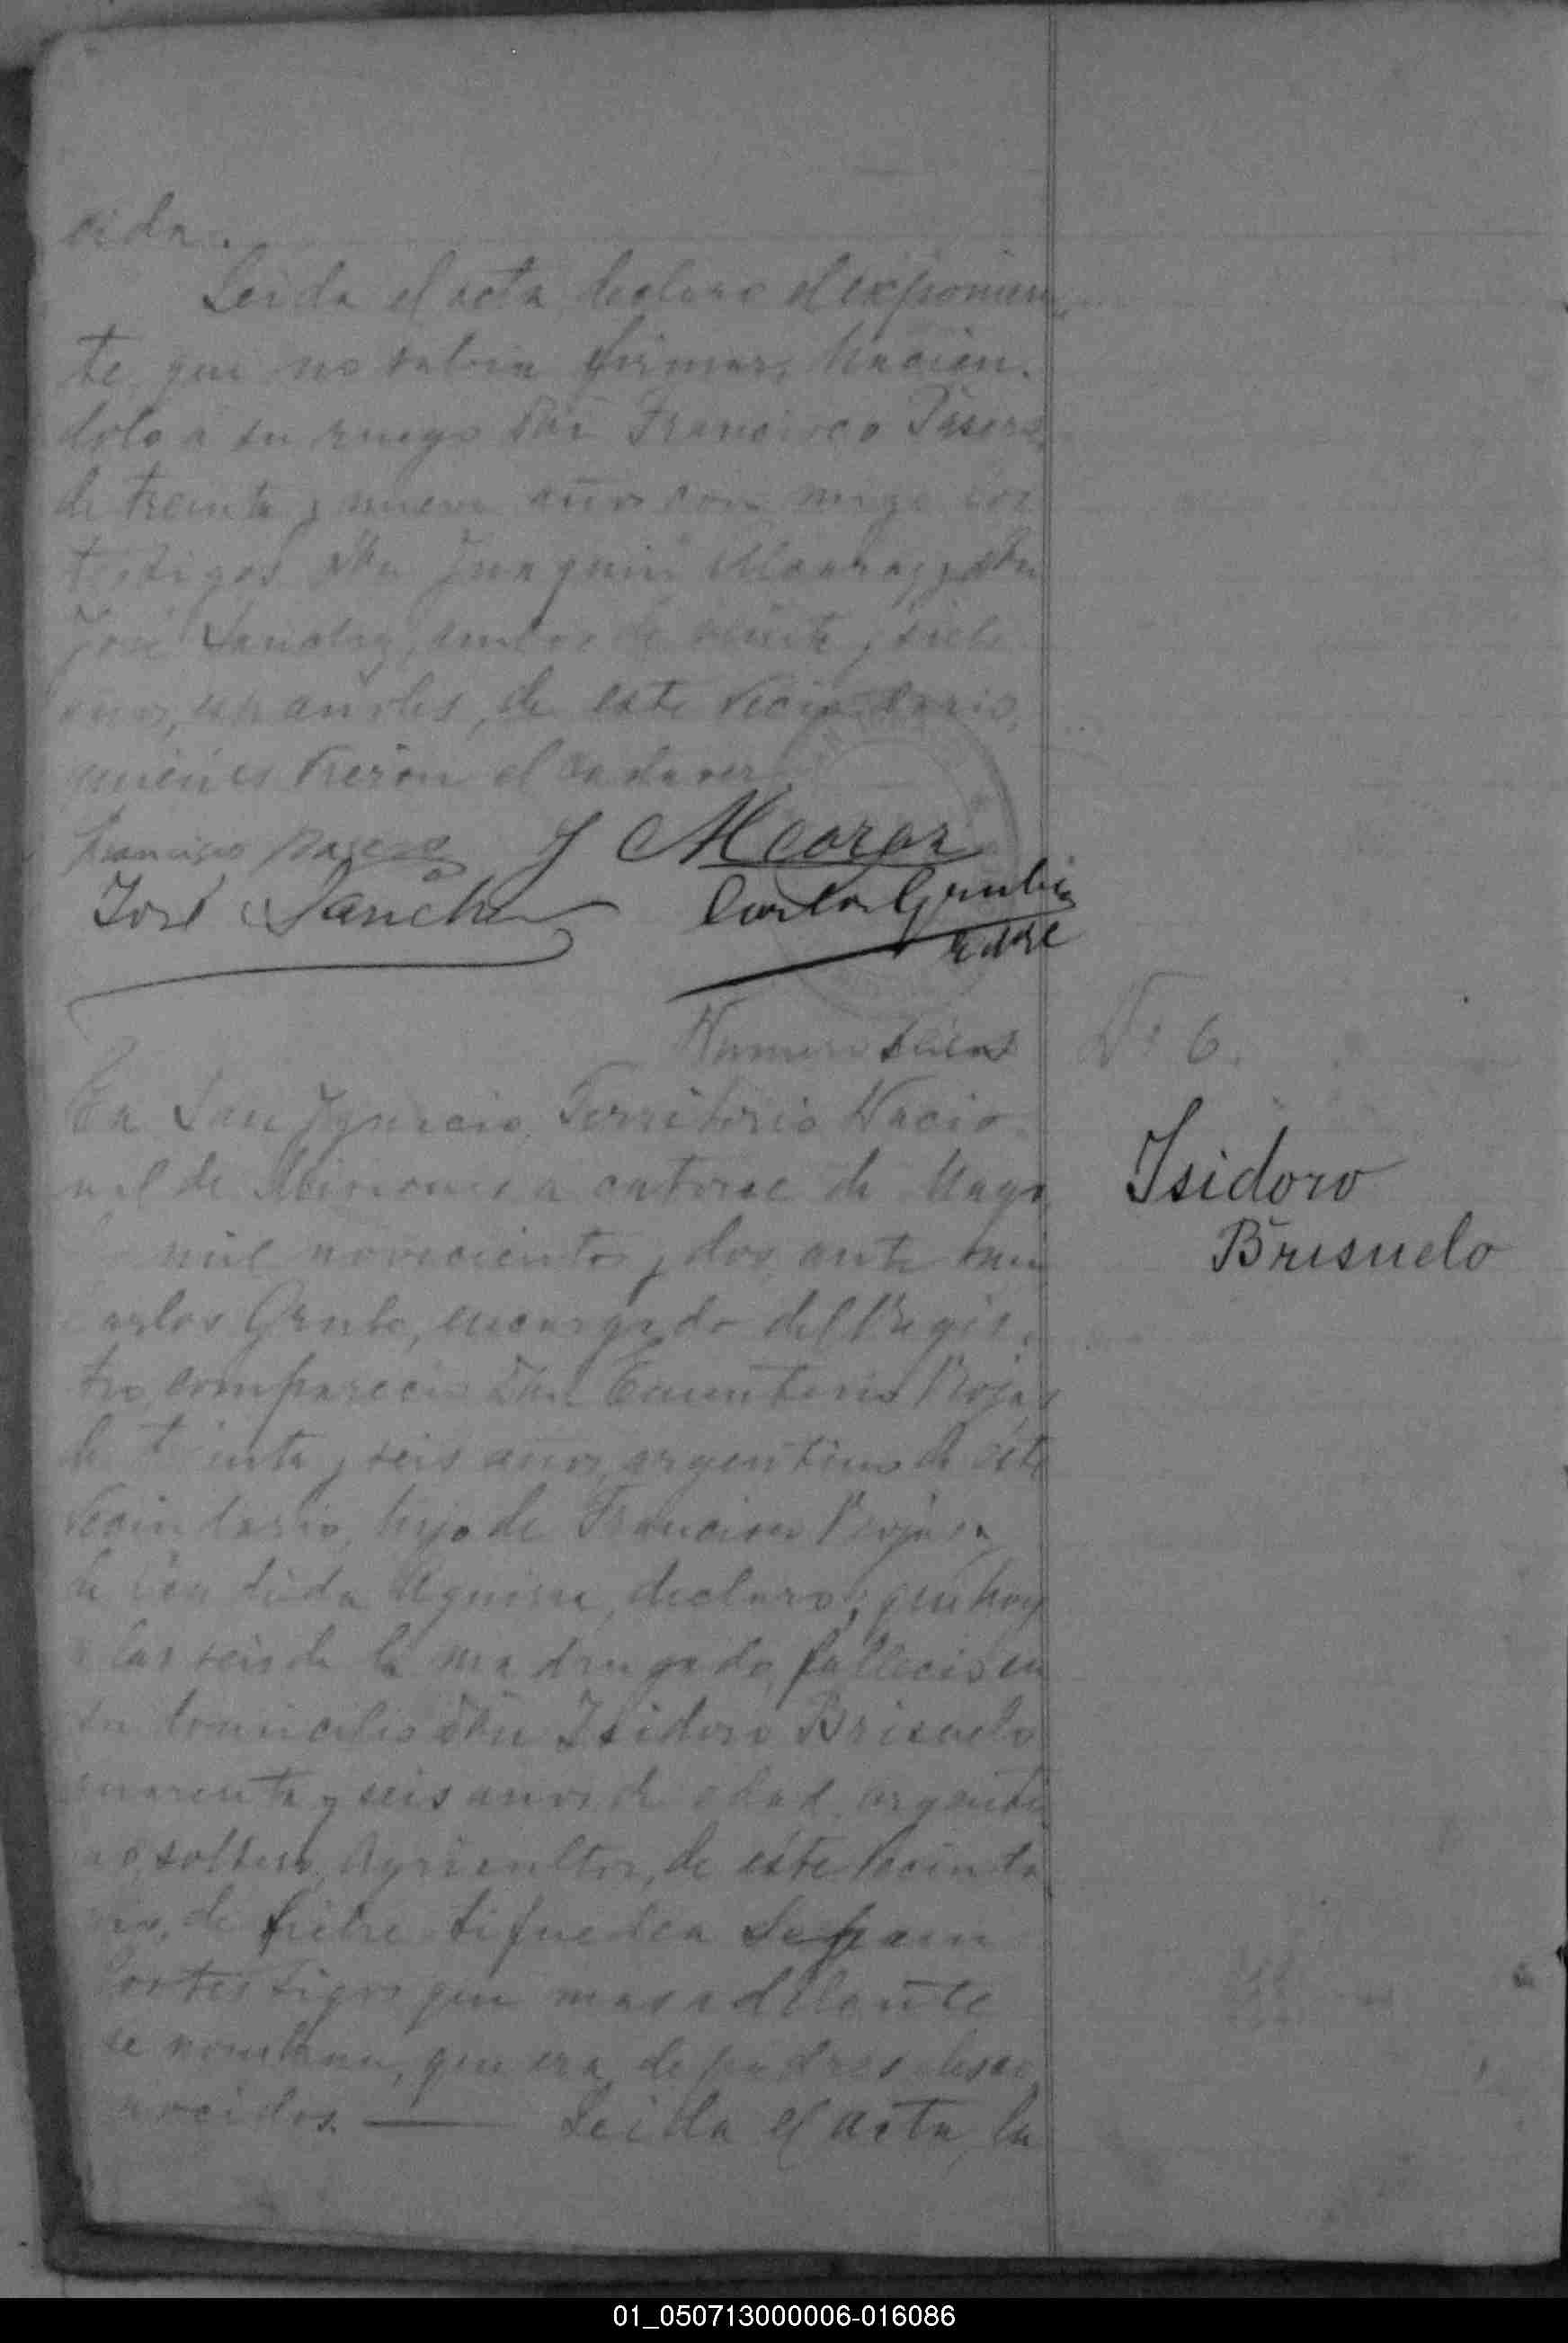 cida.
Leida el acta declaro el exponen
te que no sabia firmar, hacien.
dolo a su ruego Don Francisco
de treinta y nueve años con
testigos Don Juaquin y Don
José Sanchez, de veinte y siete
años, españoles, de este vecindario,
quienes vieron el cadaver.
Francisco
J
José Sanchez
Carlos
Numero Seis
Nº 6.
En San Ygnacio, Territorio Nacio
nal de Misiones a catorse de Mayo
mil novecientos y dos ante mi
Carlos encargado del Regis
tro, comparecio Don Rojas
de y seis años, argentino de este
vecindario, hijo de Francisco Rojas y
de declaro; que hoy
a las seis de la madrugada, fallecio en
su domicilio Don Isidoro Brisuelo
cuarenta y seis años de edad, argenti
no soltero, Agricultor, de este vecinda
rio, de fiebre
testigos que mas adelante
se nombran, que era de padres desco
nocidos. — Leida el acta, la
Isidoro
Brisuelo
01_050713000006-016086